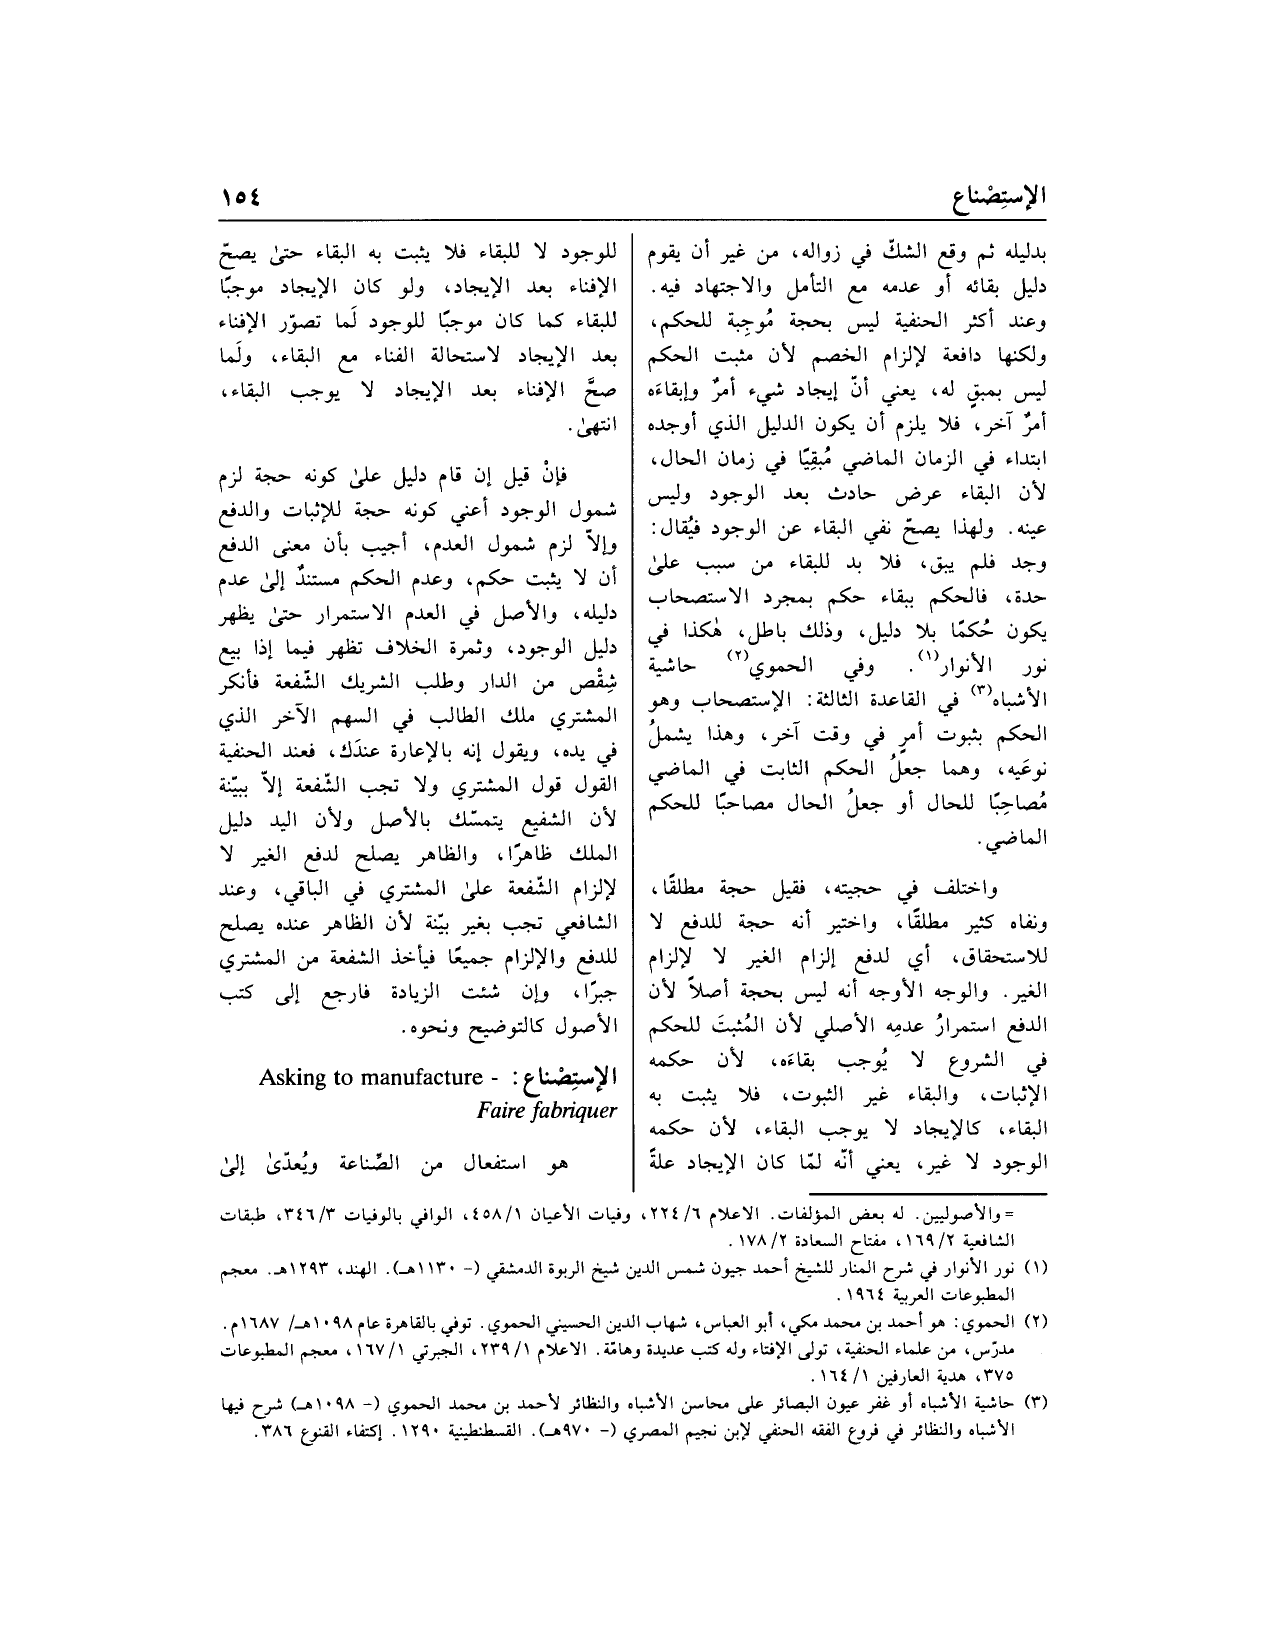 الإستِصْناع
١٥٤
بدليله ثم وقع الشكّ في زواله، من غير أن يقوم
دليل بقائه أو عدمه مع التأمل والاجتهاد فيه.
وعند أكثر الحنفية ليس بحجة مُوجِبة للحكم،
ولكنها دافعة لإلزام الخصم لأن مثبت الحكم
ليس بمبقٍ له، يعني أنّ إيجاد شيء أمرٌ وإبقاءَه
أمرٌ آخر، فلا يلزم أن يكون الدليل الذي أوجده
ابتداء في الزمان الماضي مُبقِيًا في زمان الحال،
لأن البقاء عرض حادث بعد الوجود وليس
عينه. ولهذا يصحّ نفي البقاء عن الوجود فيُقال:
وجد فلم يبق، فلا بد للبقاء من سبب علىٰ
حدة، فالحكم ببقاء حكم بمجرد الاستصحاب
يكون حُكمًا بلا دليل، وذلك باطل، هٰكذا في
نور الأنوار(١). وفي الحموي(٢) حاشية
الأشباه(٣) في القاعدة الثالثة: الإستصحاب وهو
الحكم بثبوت أمرٍ في وقت آخر، وهذا يشملُ
نوعَيه، وهما جعلُ الحكم الثابت في الماضي
مُصاحِبًا للحال أو جعلُ الحال مصاحبًا للحكم
الماضي.
واختلف في حجيته، فقيل حجة مطلقًا،
ونفاه كثير مطلقًا، واختير أنه حجة للدفع لا
للاستحقاق، أي لدفع إلزام الغير لا لإلزام
الغير. والوجه الأوجه أنه ليس بحجة أصلاً لأن
الدفع استمرارُ عدمِه الأصلي لأن المُثبتَ للحكم
في الشروع لا يُوجب بقاءَه، لأن حكمه
الإثبات، والبقاء غير الثبوت، فلا يثبت به
البقاء، كالإيجاد لا يوجب البقاء، لأن حكمه
الوجود لا غير، يعني أنّه لمّا كان الإيجاد علةً
للوجود لا للبقاء فلا يثبت به البقاء حتىٰ يصحّ
الإفناء بعد الإيجاد، ولو كان الإيجاد موجبًا
للبقاء كما كان موجبًا للوجود لَما تصوّر الإفناء
بعد الإيجاد لاستحالة الفناء مع البقاء، ولَما
صحَّ الإفناء بعد الإيجاد لا يوجب البقاء،
انتهىٰ.
فإنْ قيل إن قام دليل علىٰ كونه حجة لزم
شمول الوجود أعني كونه حجة للإثبات والدفع
وإلاّ لزم شمول العدم، أجيب بأن معنى الدفع
أن لا يثبت حكم، وعدم الحكم مستندٌ إلىٰ عدم
دليله، والأصل في العدم الاستمرار حتىٰ يظهر
دليل الوجود، وثمرة الخلاف تظهر فيما إذا بيع
شِقْص من الدار وطلب الشريك الشّفعة فأنكر
المشتري ملك الطالب في السهم الآخر الذي
في يده، ويقول إنه بالإعارة عندَك، فعند الحنفية
القول قول المشتري ولا تجب الشّفعة إلاّ ببيّنة
لأن الشفيع يتمسّك بالأصل ولأن اليد دليل
الملك ظاهرًا، والظاهر يصلح لدفع الغير لا
لإلزام الشّفعة علىٰ المشتري في الباقي، وعند
الشافعي تجب بغير بيّنة لأن الظاهر عنده يصلح
للدفع والإلزام جميعًا فيأخذ الشفعة من المشتري
جبرًا، وإن شئت الزيادة فارجع إلى كتب
الأصول كالتوضيح ونحوه.
الإستِصْناع: Asking to manufacture -
Faire fabriquer
هو استفعال من الصِّناعة ويُعدّىٰ إلىٰ
= والأصوليين. له بعض المؤلفات. الاعلام ٦/ ٢٢٤، وفيات الأعيان ١/ ٤٥٨، الوافي بالوفيات ٣/ ٣٤٦، طبقات
الشافعية ٢/ ١٦٩، مفتاح السعادة ٢/ ١٧٨.
(١) نور الأنوار في شرح المنار للشيخ أحمد جيون شمس الدين شيخ الربوة الدمشقي (- ١١٣٠هـ). الهند، ١٢٩٣هـ. معجم
المطبوعات العربية ١٩٦٤.
(٢) الحموي: هو أحمد بن محمد مكي، أبو العباس، شهاب الدين الحسيني الحموي. توفي بالقاهرة عام ١٠٩٨هـ/ ١٦٨٧م.
مدرّس، من علماء الحنفية، تولى الإفتاء وله كتب عديدة وهامّة. الاعلام ١/ ٢٣٩، الجبرتي ١/ ١٦٧، معجم المطبوعات
٣٧٥، هدية العارفين ١/ ١٦٤.
(٣) حاشية الأشباه أو غفر عيون البصائر على محاسن الأشباه والنظائر لأحمد بن محمد الحموي (- ١٠٩٨هـ) شرح فيها
الأشباه والنظائر في فروع الفقه الحنفي لإبن نجيم المصري (- ٩٧٠هـ). القسطنطينية ١٢٩٠. إكتفاء القنوع ٣٨٦.